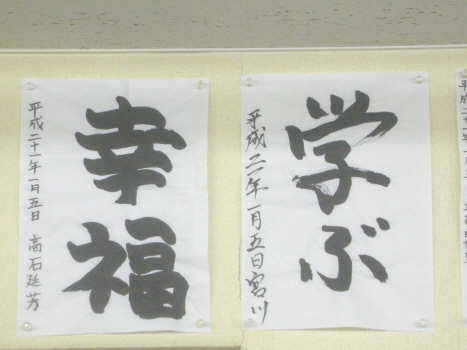 学ぶ
平成二一年一月五日宮川
幸福
平成二十一年一月五日 高石延芳